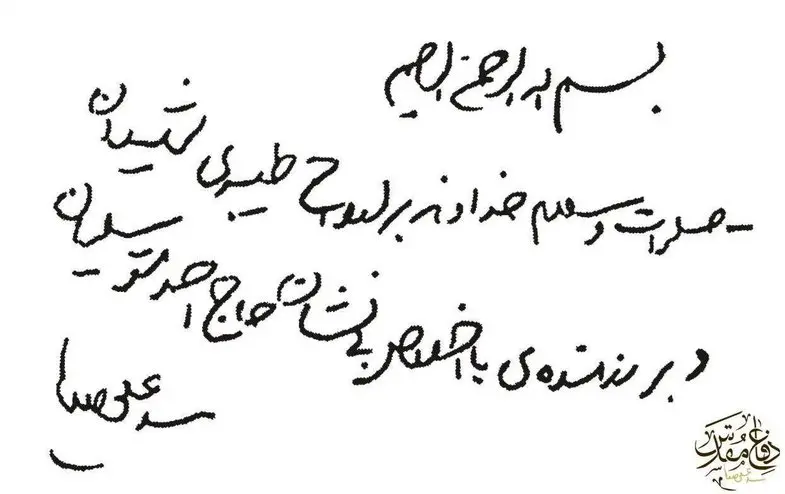 بسم الله الرحمن الرحیم
صلوات و سلام خداوند بر ارواح طیبه‌ی شهیدان
و بر رزمنده‌ی با اخلاص بی نشان حاج احمد متوسلیان
سید علی صدا
دفاع مقدس